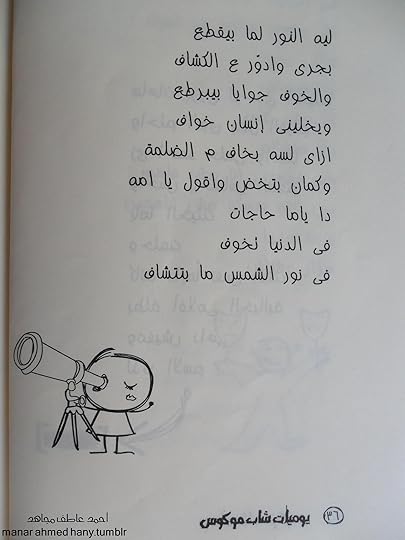 ليه النور لما بيقطع
بجرى وادوّر ع الكشاف
والخوف جوايا بيبرطع
ويخلينى إنسان خواف
ازاى لسه بخاف م الضلمة
وكمان بتخض واقول يا امه
دا ياما حاجات
فى الدنيا تخوف
فى نور الشمس ما بتتشاف
٣٦
يوميات شاب موكوس
احمد عاطف مجاهد
manar ahmed hany.tumblr